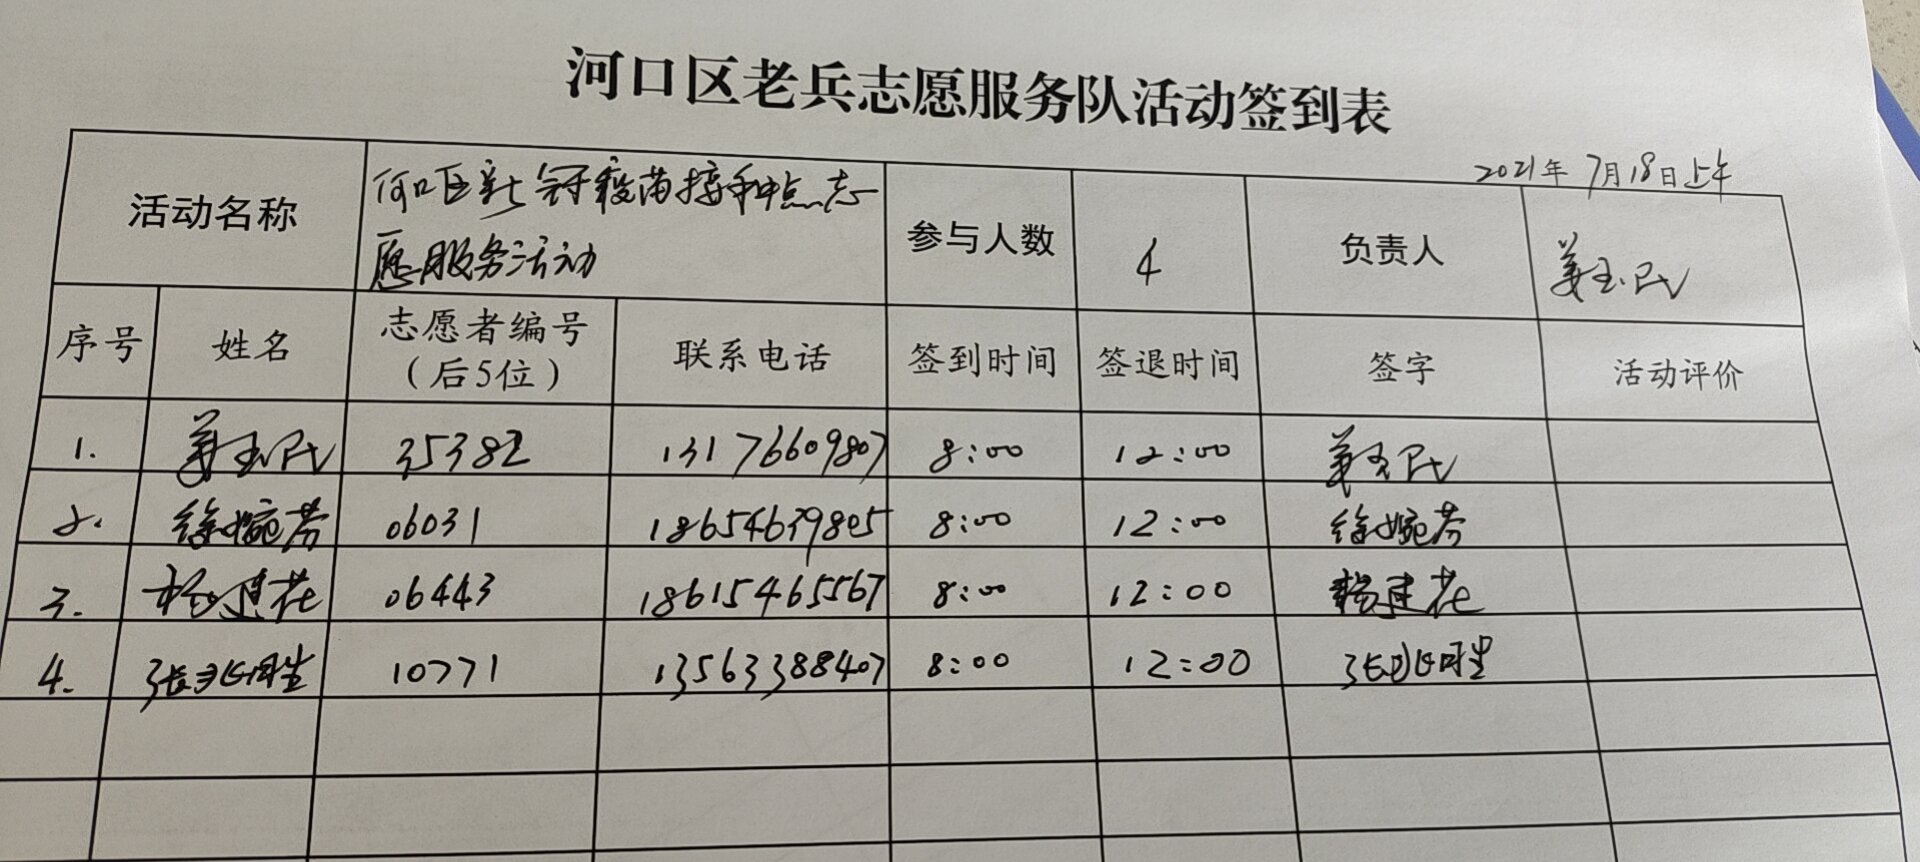 河口区老兵志愿服务队活动签到表
2021年7月18日上午
活动名称 河口区新冠疫苗接种点志愿服务活动 参与人数 4 负责人 姜玉民
序号 姓名 志愿者编号（后5位） 联系电话 签到时间 签退时间 签字 活动评价
1. 姜玉民 35382 13176609807 8:00 12:00 姜玉民
2. 徐婉芬 06031 18654639805 8:00 12:00 徐婉芬
3. 杨建花 06443 18615465567 8:00 12:00 杨建花
4. 10771 13563388407 8:00 12:00